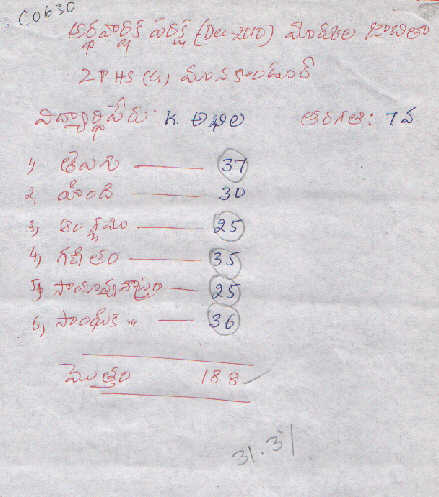 C0630
అర్థవార్షిక పరీక్ష (Dec-2010) మార్కుల జాబితా
ZPHS (G) మునకాలండూర్
విద్యార్థి పేరు: K. అఖిల తరగతి: 7వ
1, తెలుగు —— 37
2, హింది —— 30
3, ఇంగ్లీషు —— 25
4, గణితం —— 35
5, సామాన్యశాస్త్రం — 25
6, సాంఘిక " — 36
మొత్తం 188
31.31